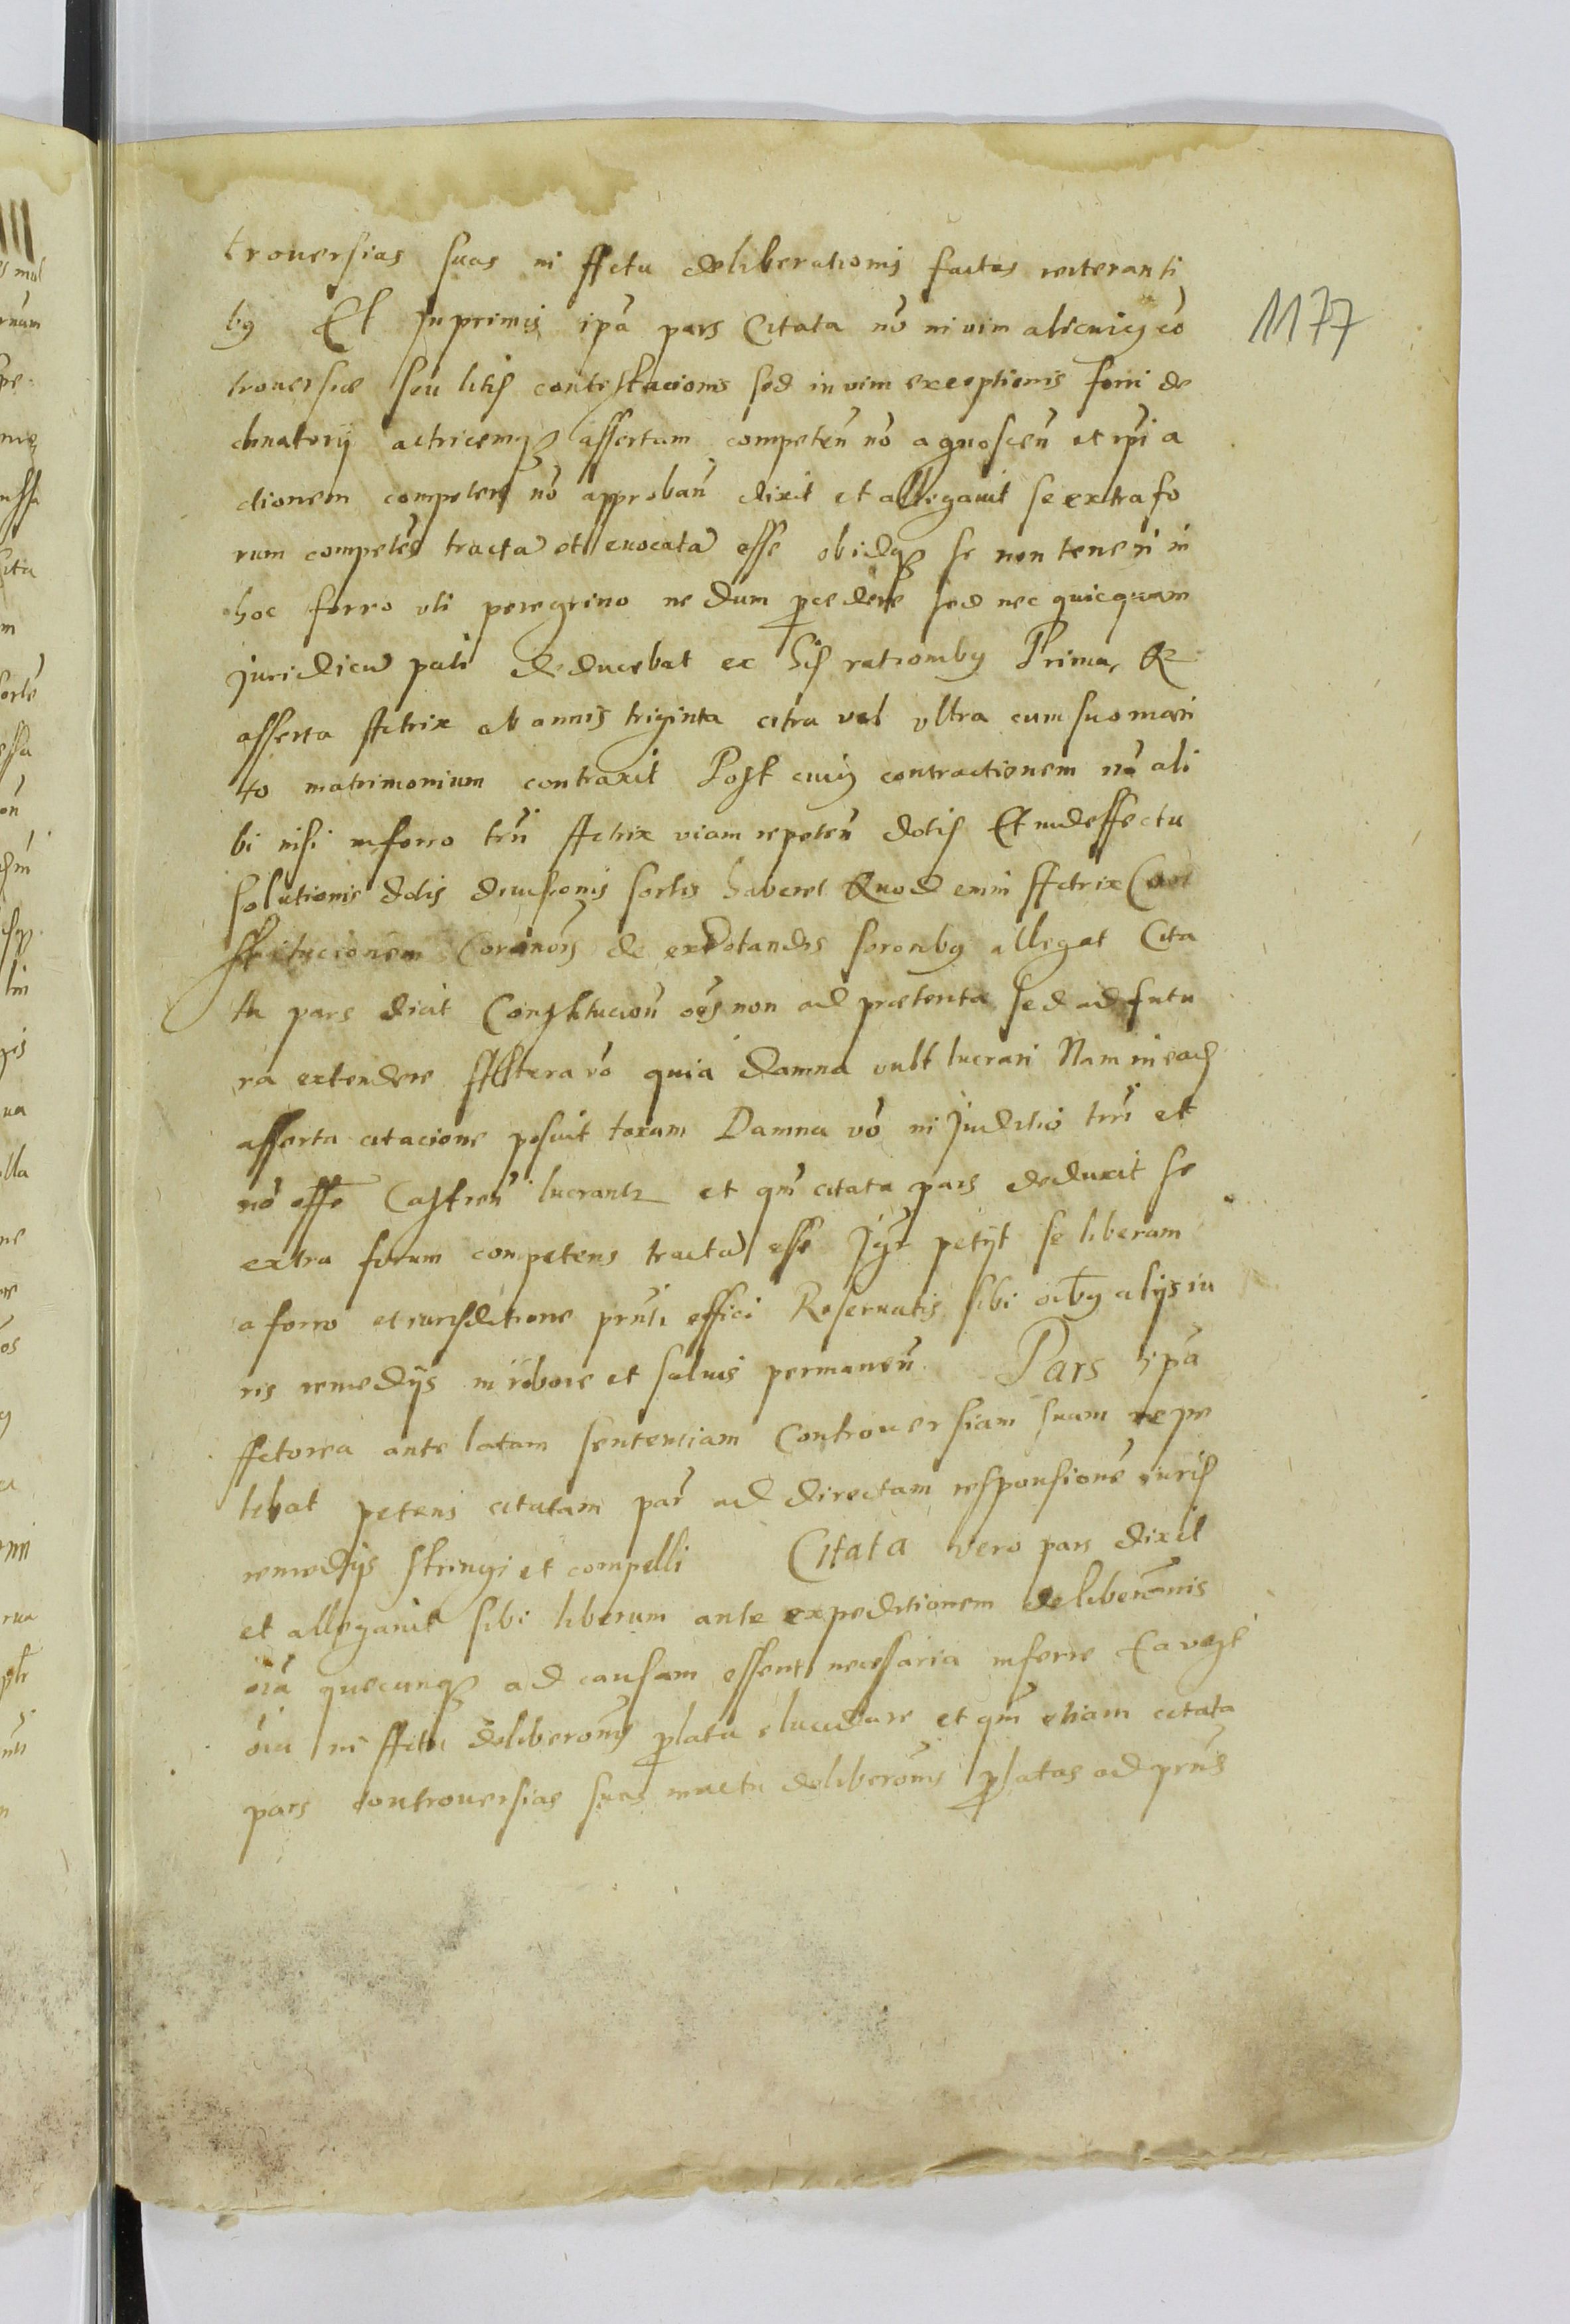 trouersias suas in Actu deliberationis factas reiteranti
by Et Inprimis ipā pars Citata nō in uim alicuiy cō
trouersiæ seu litis contestacionis sed in uim exceptionis forri de
clinatorij actricemq assertam competeñ nō agnosceñ et ipi a
ctionem competeñ nō approbañ dixit et allegauit se extra fo
rum competēs tractā et euocatā esse obidq se non teneri in
hoc forro uti peregrino nedum pcedere sed nec quicquam
juridicū pati deducebat ex his rationiby Prima Q
asserta Actrix ab annis triginta citra vel vltra cum suo mari
to matrimonium contraxit Post cuiy contractionem nō ali
bi nisi in forro trri Actrix viam repeteñ dotis Et in deffectu
solutionis dotis diuisionis sortis haberet Quod enim Actrix Con
stitucionem de exdotandis sororiby allegat Cita
ta pars dicit Constitucioñ oēs non ad præterita sed ad futu
ra extendere Altera vō quia damna vult lucrari Nam in ead
asserta citacione posuit toxam Damna vō in Juditio trri et
nō esse Castreñ lucrantr et qm citata pars deduxit se
extra forum competens tractā esse Igr petijt se liberam
a forro et iurisditione pñti effici Reseruatis sibi oiby alijs iu
ris remedijs in robore et saluis permaneñ Pars ipā
Actorea ante latam sententiam Controuersiam suam repe
tebat petens citatam par ad directam responsionē iuris
remedijs stringi et compelli Citata vero pars dixit
et allegauit sibi liberum ante expeditionem deliberōnis
oīa quecunq ad causam essent necessaria inferre
oīa in Actu deliberōnis plata elucidare et qm etiam citata
pars controuersias suas in actu deliberōnis platas ad prñs
1177